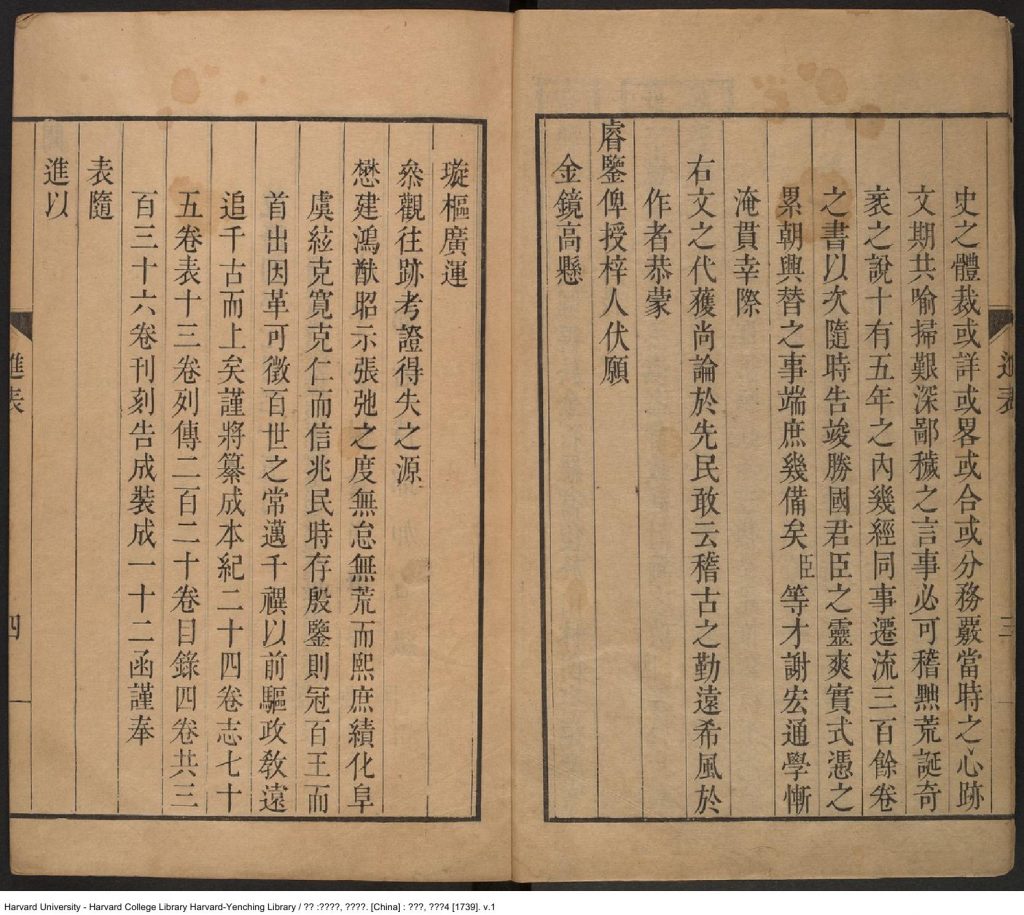 史之體裁或詳或畧或合或分務覈當時之心跡
文期共喻掃艱深鄙穢之言事必可稽黜荒誕奇
袤之說十有五年之內幾經同事遷流三百餘卷
之書以次隨時告竣勝國君臣之靈爽實式憑之
累朝興替之事端庶幾備矣臣等才謝宏通學慚
淹貫幸際
右文之代獲尚論於先民敢云稽古之勤遠希風於
作者恭蒙
睿鑒俾授梓人伏願
金鏡高懸
璇樞廣運
叅觀往跡考證得失之源
懋建鴻猷昭示張弛之度無怠無荒而熙庶績化阜
虞絃克寬克仁而信兆民時存殷鑒則冠百王而
首出因革可徵百世之常邁千禩以前驅政教遠
追千古而上矣謹將纂成本紀二十四卷志七十
五卷表十三卷列傳二百二十卷目錄四卷共三
百三十六卷刊刻告成裝成一十二函謹奉
表隨
進以
進表
三
進表
四
Harvard University - Harvard College Library Harvard-Yenching Library / ?? :????, ????. [China] : ???, ???4 [1739]. v.1